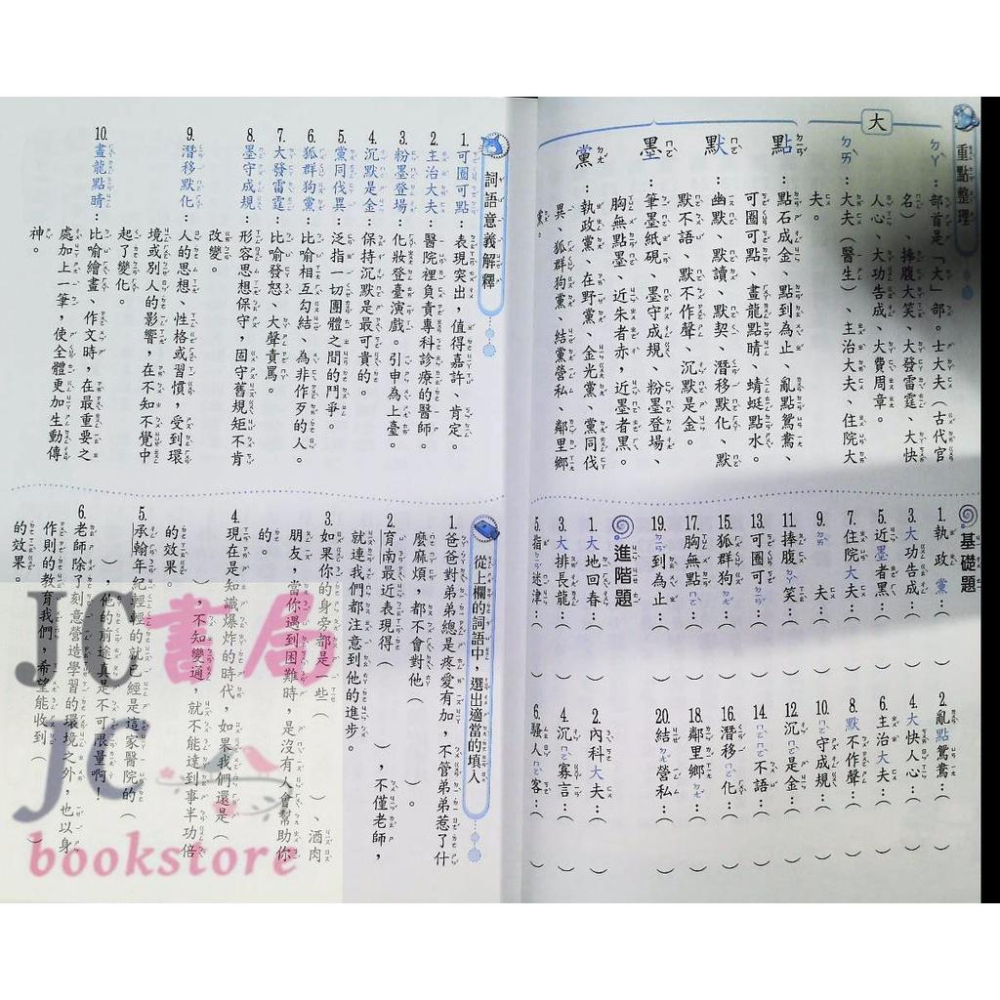 重點整理
大
ㄉㄚˋ:部首是「大」部。士大夫(古代官
名)、捧腹大笑、大發雷霆、大快
人心、大功告成、大費周章。
ㄉㄞˋ:大夫(醫生)、主治大夫、住院大
夫。
點:點石成金、點到為止、亂點鴛鴦、
可圈可點、畫龍點睛、蜻蜓點水。
默:幽默、默讀、默契、潛移默化、默
默不語、默不作聲、沉默是金。
墨:筆墨紙硯、墨守成規、粉墨登場、
胸無點墨、近朱者赤,近墨者黑。
黨:執政黨、在野黨、金光黨、黨同伐
異、狐群狗黨、結黨營私、鄰里鄉
黨。
基礎題
1.執政黨:( )
2.亂點鴛鴦:( )
3.大功告成:( )
4.大快人心:( )
5.近墨者黑:( )
6.主治大夫:( )
7.住院大夫:( )
8.默不作聲:( )
9.ㄉㄞˋ夫:( )
10.ㄇㄛˋ守成規:( )
11.捧腹ㄉㄚˋ笑:( )
12.沉ㄇㄛˋ是金:( )
13.可圈可ㄉㄧㄢˇ:( )
14.ㄇㄛˋㄇㄛˋ不語:( )
15.狐群狗ㄉㄤˇ:( )
16.潛移ㄇㄛˋ化:( )
17.胸無點ㄇㄛˋ:( )
18.鄰里鄉ㄉㄤˇ:( )
19.ㄉㄧㄢˇ到為止:( )
20.結ㄉㄤˇ營私:( )
進階題
1.大地回春:( )
2.內科大夫:( )
3.大排長龍:( )
4.沉ㄇㄛˋ寡言:( )
5.指ㄉㄧㄢˇ迷津:( )
6.騷人ㄇㄛˋ客:( )
詞語意義解釋
1.可圈可點:表現突出,值得嘉許、肯定。
2.主治大夫:醫院裡負責專科診療的醫師。
3.粉墨登場:化妝登臺演戲。引申為上臺。
4.沉默是金:保持沉默是最可貴的。
5.黨同伐異:泛指一切團體之間的鬥爭。
6.狐群狗黨:比喻相互勾結、為非作歹的人。
7.大發雷霆:比喻發怒、大聲責罵。
8.墨守成規:形容思想保守,固守舊規矩不肯
改變。
9.潛移默化:人的思想、性格或習慣,受到環
境或別人的影響,在不知不覺中
起了變化。
10.畫龍點睛:比喻繪畫、作文時,在最重要之
處加上一筆,使全體更加生動傳
神。
從上欄的詞語中,選出適當的填入
1.爸爸對弟弟總是疼愛有加,不管弟弟惹了什
麼麻煩,都不會對他( )。
2.育南最近表現得( ),不僅老師,
就連我們都注意到他的進步。
3.如果你的身旁都是一些( )、酒肉
朋友,當你遇到困難時,是沒有人會幫助你
的。
4.現在是知識爆炸的時代,如果我們還是(
),不知變通,就不能達到事半功倍
的效果。
5.承翰年紀輕輕的就已經是這家醫院的(
),他的前途真是不可限量啊!
6.老師除了刻意營造學習的環境之外,也以身
作則的教育我們,希望能收到( )
的效果。
JC書局
JC
bookstore